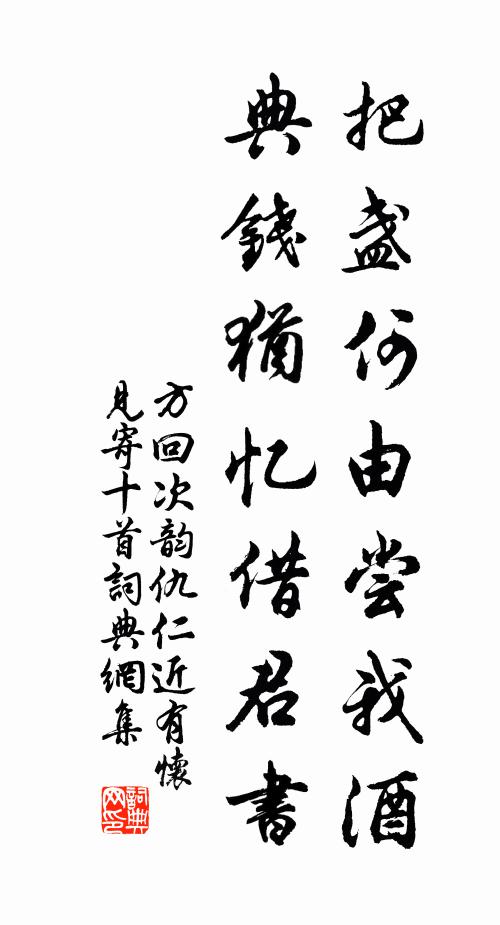 把盏何由尝我酒
典錢猶忆借君書
方回次韵仇仁近有懷
見寄十首詞典網集
詞典
网印